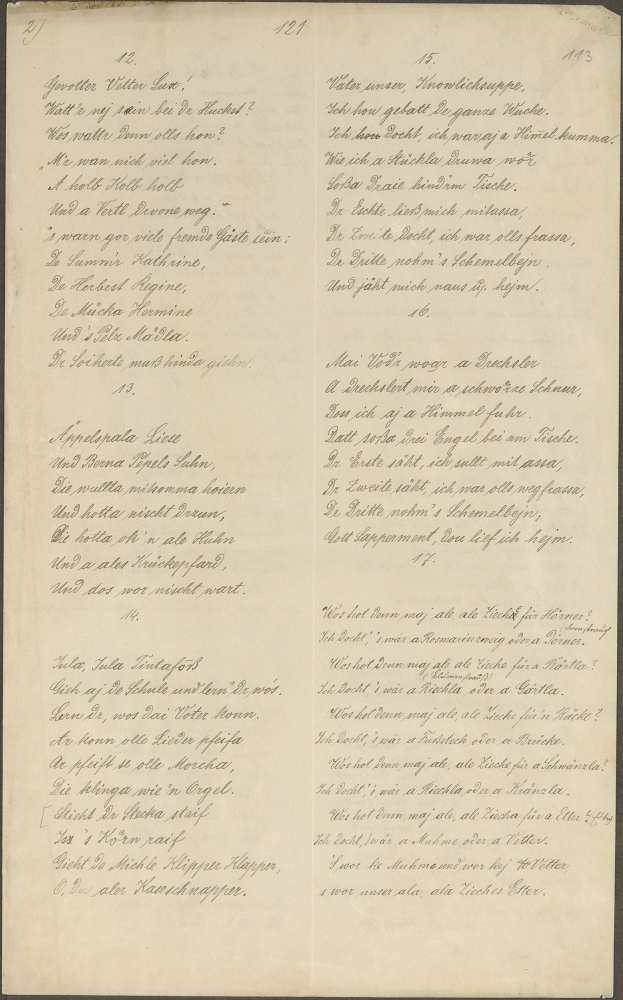 2)
121
113
12.
Gevotter Vetter Lux!
Watt'r nej sein bei dr Huckst?
Wos wattr denn olls hon?
„M'r wan nich viel hon.
A holb Kolb holb
Und a Vertl drvone weg.“
's warn gor viele fremde Gäste sein:
De Summ'r Kathrine,
De Herbest Regine,
De Mücka Hermine
Und 's Pelz Madla.
Dr Soiherte muß hinda giehn.
13.
Äppelspala Liese
Und Berna Pëpels Suhn,
Die wullta mitsomma hoiern
Und hotta nischt drzun,
Die hotta ok 'n ale Huhn
Und a ales Krückepfard,
Und dos wor nischt wart.
14.
Jula, Jula Tintafoß
Gieh aj de Schule und lern' Dr wos.
Lern dr, wos dai Voter konn.
Ar konn olle Lieder pfeifa
Ar pfeift se olle Morcha,
Die klinga wie 'n Orgel.
[ Sticht Dr Stecka staif
Is 's Kôrn raif
Gieht De Michle Klipper Klapper,
O, Du aler Kaseschnapper.
15.
Vater unser, Knowlichsuppe,
Ich hou gebatt De ganze Wuche.
Ich docht, ich war aj a Himmel kumma.
Wie ich a Stückla druwa wor
Soßa Draie hind'rm Tische.
Dr Eschte ließ mich mitassa,
Dr Zweite docht, ich war olls frassa,
Dr Dritte nohm's Schemelbejn
Und jäht mich naus hejm.
16.
Mai Vod'r woar a Drechsler
A drechslert mir a schworze Schnur,
Doss ich aj a Himmel fuhr.
Datt soßa drei Engel bei am Tische.
Dr Erste säht, ich sullt mit assa,
Dr Zweite säht, ich war olls wegfrassa,
Dr Dritte nohm's Schemelbejn,
Gott Sapperment, dou lief ich hejm.
17.
Wos hot denn maj ale, ale Zieche für Hörner?
Ich docht, 's wär a Rosmarinzweig oder a Dörner.
Wos hot denn maj ale, ale Zieche für a Bärtla?
Ich docht, 's wär a Riechla oder a Gärtla.
Wos hot denn maj ale, ale Zieche für 'n Rücke?
Ich docht, 's wär a oder a Brücke.
Wos hot denn maj ale, ale Zieche für a Schwänzla?
Ich docht, 's wär a Riechla oder a Kränzla.
Wos hot denn maj ale, ale Zieche für a Etter?
Ich docht, 's wär a Muhme oder a Vetter.
's wor ke Muhme und wor kej Vetter
s wor unser ala, ala Zieches Etter.